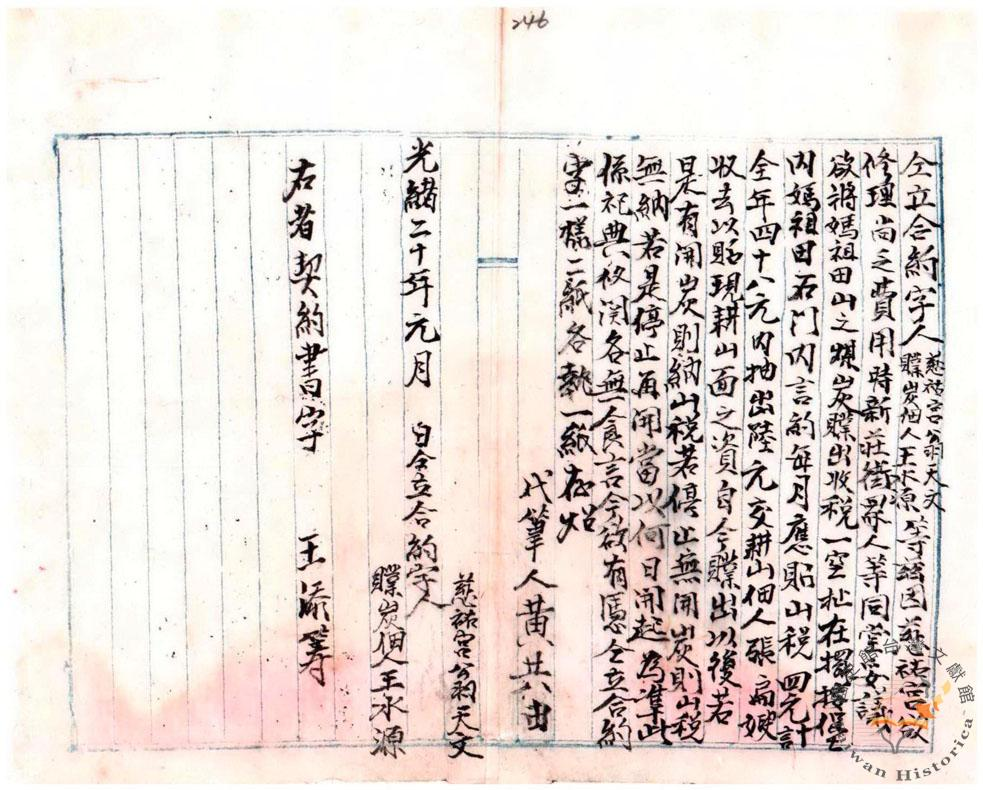 246
仝立合約字人慈祐宮翁天文
贌炭佃人王水源等緣因慈祐宮欲
修理尚乏費用時新莊街眾人等同堂妥議
欲將媽祖田山之煤炭贌出收稅一空址在擺接堡
內媽祖田石門內言約每月應貼山稅四元計
全年四十八元內抽出陸元交耕山佃人張扁嫂
收去以貼現耕山面之資自今贌出以後若
是有開炭則納山稅若停止無開炭則山稅
無納若是停止再開當以何日開起為準此
係祀典攸関各無食言今欲有憑仝立合約
字一樣二紙各執一紙存炤
代筆人黃共山
慈祐宮翁天文
光緒二十年元月 日仝立合約字人
贌炭佃人王水源
右者契約書字 王添等
館台 文獻館
Taiwan Historica